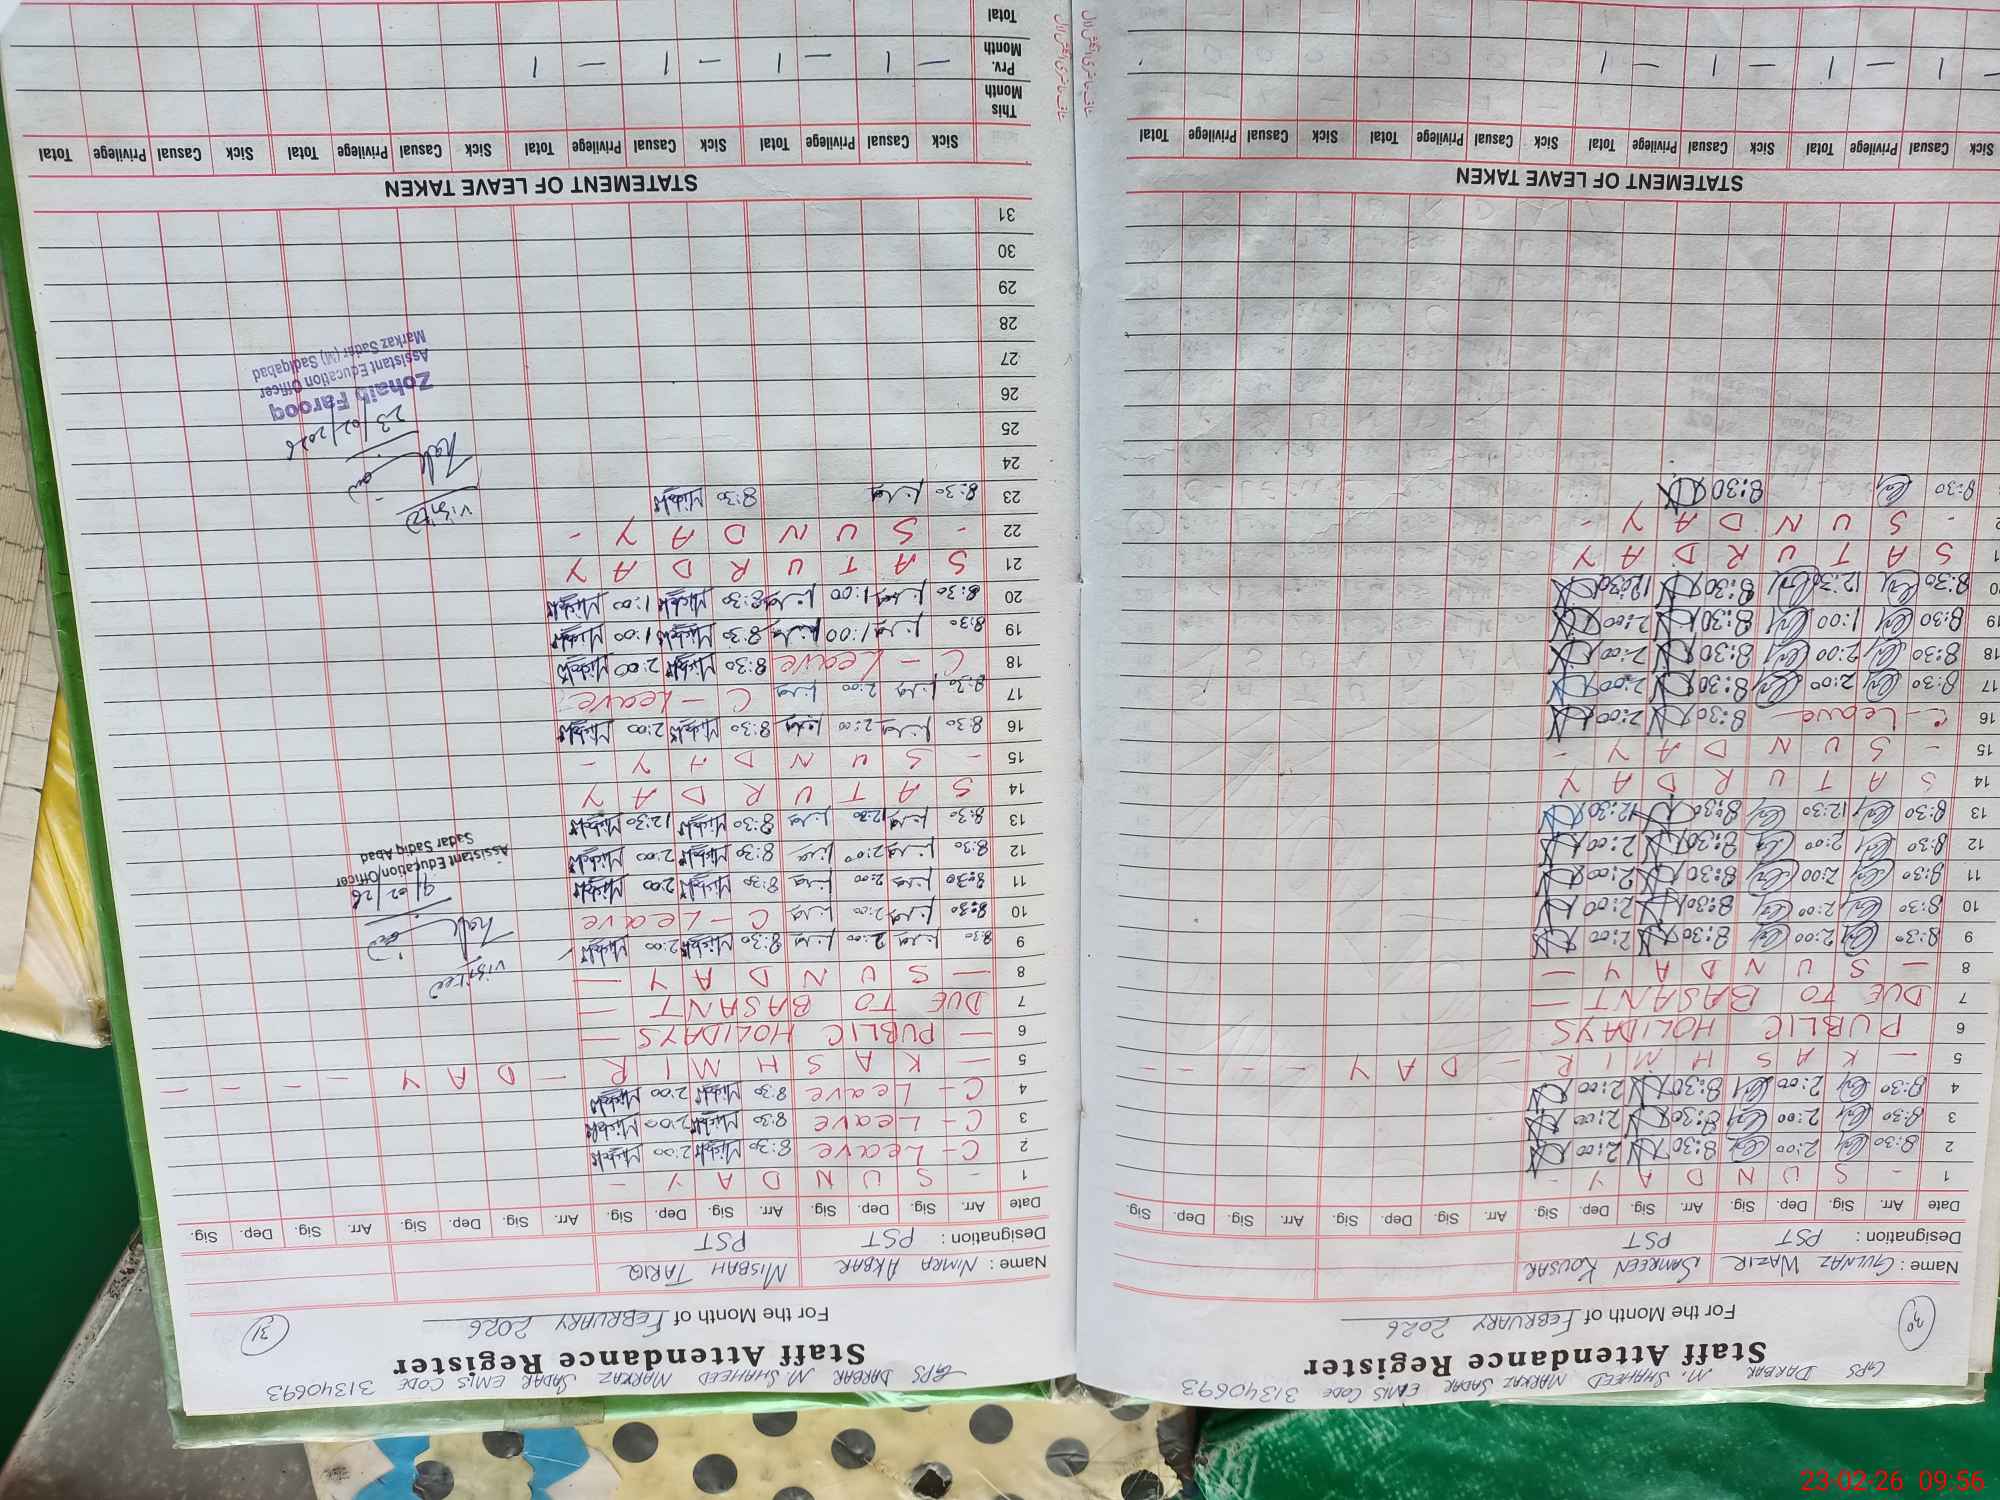 GPS DARBAR M. SHAHEED MARKAZ SADAR EMIS CODE 31340693
Staff Attendance Register
30
For the Month of FEBRUARY 2026
Name : GULNAZ WAZIR SAMREEN KOUSAR
Designation : PST PST
Date Arr. Sig. Dep. Sig. Arr. Sig. Dep. Sig. Arr. Sig. Dep. Sig. Arr. Sig. Dep. Sig.
1 - S U N D A Y -
2 8:30 2:00 8:30 2:00
3 8:30 2:00 8:30 2:00
4 8:30 2:00 8:30 2:00
5 — K A S H M I R — D A Y - - - -
6 PUBLIC HOLIDAYS
7 DUE TO BASANT —
8 — S U N D A Y —
9 8:30 2:00 8:30 2:00
10 8:30 2:00 8:30 2:00
11 8:30 2:00 8:30 2:00
12 8:30 2:00 8:30 2:00
13 8:30 12:30 8:30 12:30
14 S A T U R D A Y
15 - S U N D A Y -
16 C - Leave 8:30 2:00
17 8:30 2:00 8:30 2:00
18 8:30 2:00 8:30 2:00
19 8:30 1:00 8:30 2:00
20 8:30 12:30 8:30 12:30
S A T U R D A Y
- S U N D A Y -
8:30 8:30
STATEMENT OF LEAVE TAKEN
Sick Casual Privilege Total Sick Casual Privilege Total Sick Casual Privilege Total Sick Casual Privilege Total
— 1 — 1 — 1 — 1
GPS DARBAR M. SHAHEED MARKAZ SADAR EMIS CODE 31340693
Staff Attendance Register
31
For the Month of FEBRUARY 2026
Name : NIMRA AKBAR MISBAH TARIQ
Designation : PST PST
Date Arr. Sig. Dep. Sig. Arr. Sig. Dep. Sig. Arr. Sig. Dep. Sig. Arr. Sig. Dep. Sig.
1 - S U N D A Y -
2 C - Leave 8:30 Misbah 2:00 Misbah
3 C - Leave 8:30 Misbah 2:00 Misbah
4 C - Leave 8:30 Misbah 2:00 Misbah
5 — K A S H M I R — D A Y - - - -
6 — PUBLIC HOLIDAYS —
7 DUE TO BASANT —
8 — S U N D A Y —
9 8:30 2:00 8:30 Misbah 2:00 Misbah
10 8:30 2:00 C - Leave
11 8:30 2:00 8:30 Misbah 2:00 Misbah
12 8:30 2:00 8:30 Misbah 2:00 Misbah
13 8:30 12:30 8:30 Misbah 12:30 Misbah
14 S A T U R D A Y
15 - S U N D A Y -
16 8:30 2:00 8:30 Misbah 2:00 Misbah
17 8:30 2:00 C - Leave
18 C - Leave 8:30 Misbah 2:00 Misbah
19 8:30 1:00 8:30 Misbah 1:00 Misbah
20 8:30 1:00 8:30 Misbah 1:00 Misbah
21 S A T U R D A Y
22 - S U N D A Y -
23 8:30 8:30 Misbah
24
25
26
27
28
29
30
31
visited
9/02/26
Assistant Education Officer
Sadar Sadiq Abad
visited
23/02/2026
Zohaib Farooq
Assistant Education Officer
Markaz Sadar (M) Sadiqabad
STATEMENT OF LEAVE TAKEN
Sick Casual Privilege Total Sick Casual Privilege Total Sick Casual Privilege Total Sick Casual Privilege Total
This Month
Prv. Month — 1 — 1 — 1 — 1
Total
23-02-26 09:56